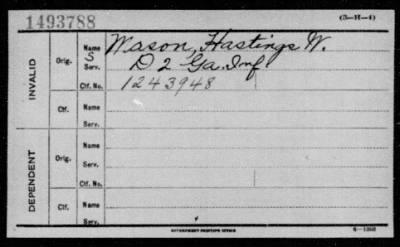 1493788 (3-H-4)
INVALID
Orig.
Name Wason, Hastings W.
S
Serv. D 2 Ga. Inf
Ctf. No. 1243948
Ctf.
Name
Serv.
DEPENDENT
Orig.
Name
Serv.
Ctf. No.
Ctf.
Name
Serv.
GOVERNMENT PRINTING OFFICE